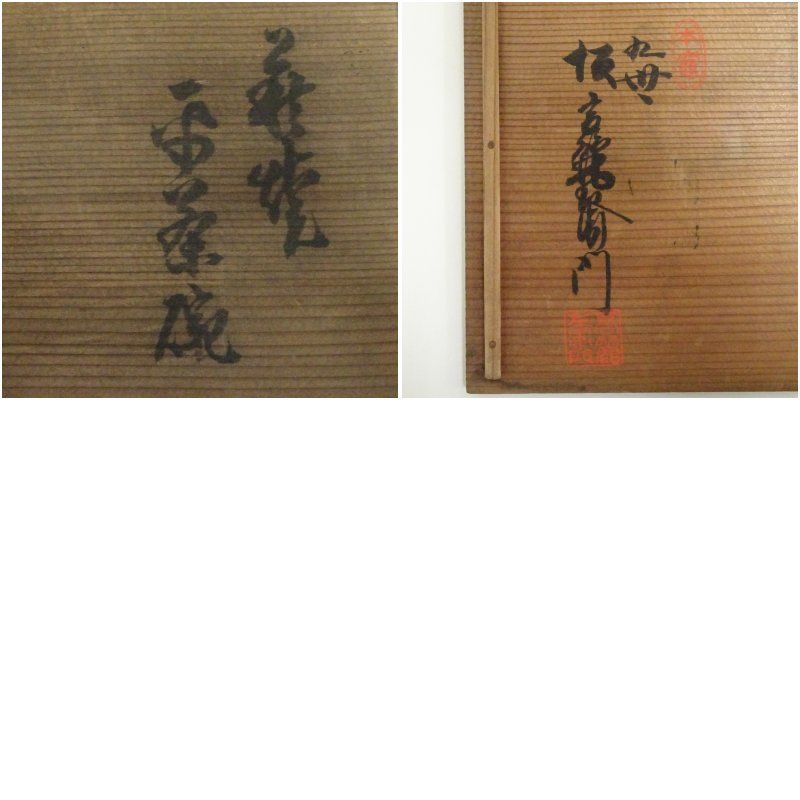 萩焼
平茶碗
九世
坂高麗左衛門